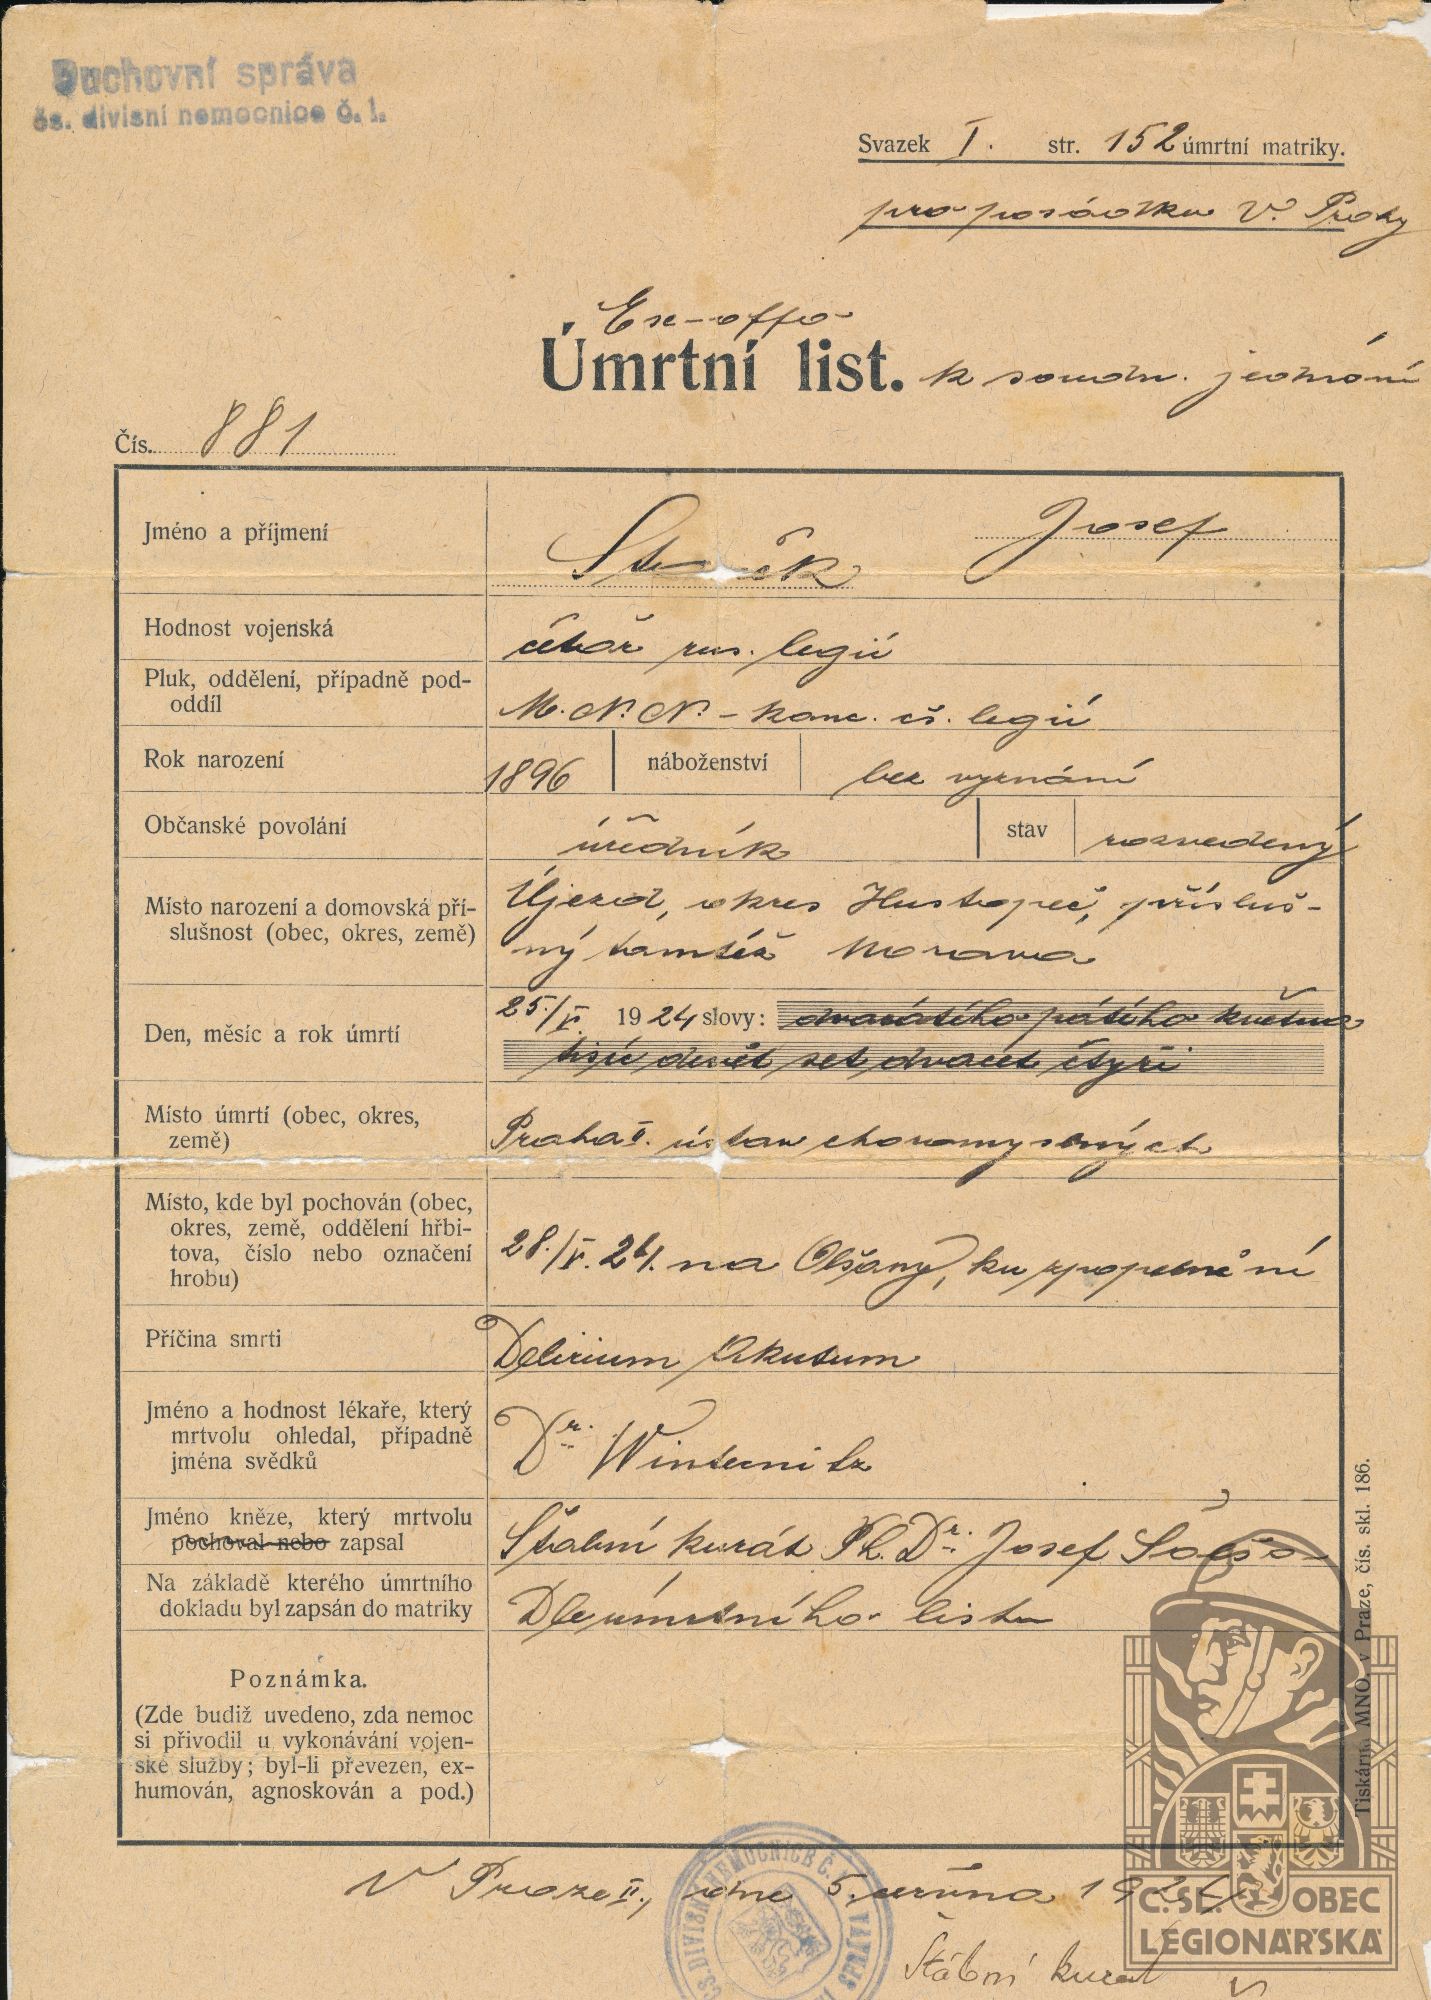 Duchovní správa
čs. divisní nemocnice č. 1.
Svazek I. str. 152 úmrtní matriky.
pro posádku V. Prahy
Ex-offo
Úmrtní list. k soudn. jednání
Čís. 881
Jméno a příjmení Josef
Hodnost vojenská četař rus. legií
Pluk, oddělení, případně pod-
oddíl M.N.O. - kanc. čs. legií
Rok narození 1896 náboženství bez vyznání
Občanské povolání úředník stav rozvedený
Místo narození a domovská pří-
slušnost (obec, okres, země)
Újezd, okres Hustopeč, přísluš-
ný tamtéž Morava
Den, měsíc a rok úmrtí 25./V. 1924 slovy: dvacátého pátého května
tisíc devět set dvacet čtyři
Místo úmrtí (obec, okres,
země) Praha II. ústav choromyslných
Místo, kde byl pochován (obec,
okres, země, oddělení hřbi-
tova, číslo nebo označení
hrobu)
28./V. 24. na Olšany, ku zpopelnění
Příčina smrti Delirium Akutum
Jméno a hodnost lékaře, který
mrtvolu ohledal, případně
jména svědků
Dr. Winternitz
Jméno kněze, který mrtvolu
pochoval nebo zapsal
Štábní kurát Ph. Dr. Josef
Na základě kterého úmrtního
dokladu byl zapsán do matriky
Dle úmrtního listu
Poznámka.
(Zde budiž uvedeno, zda nemoc
si přivodil u vykonávání vojen-
ské služby; byl-li převezen, ex-
humován, agnoskován a pod.)
Tiskárna MNO. v Praze, čís. skl. 186.
V Praze II., dne 5. června 192
Štábní kurát
Č.SL. OBEC
LEGIONÁŘSKÁ